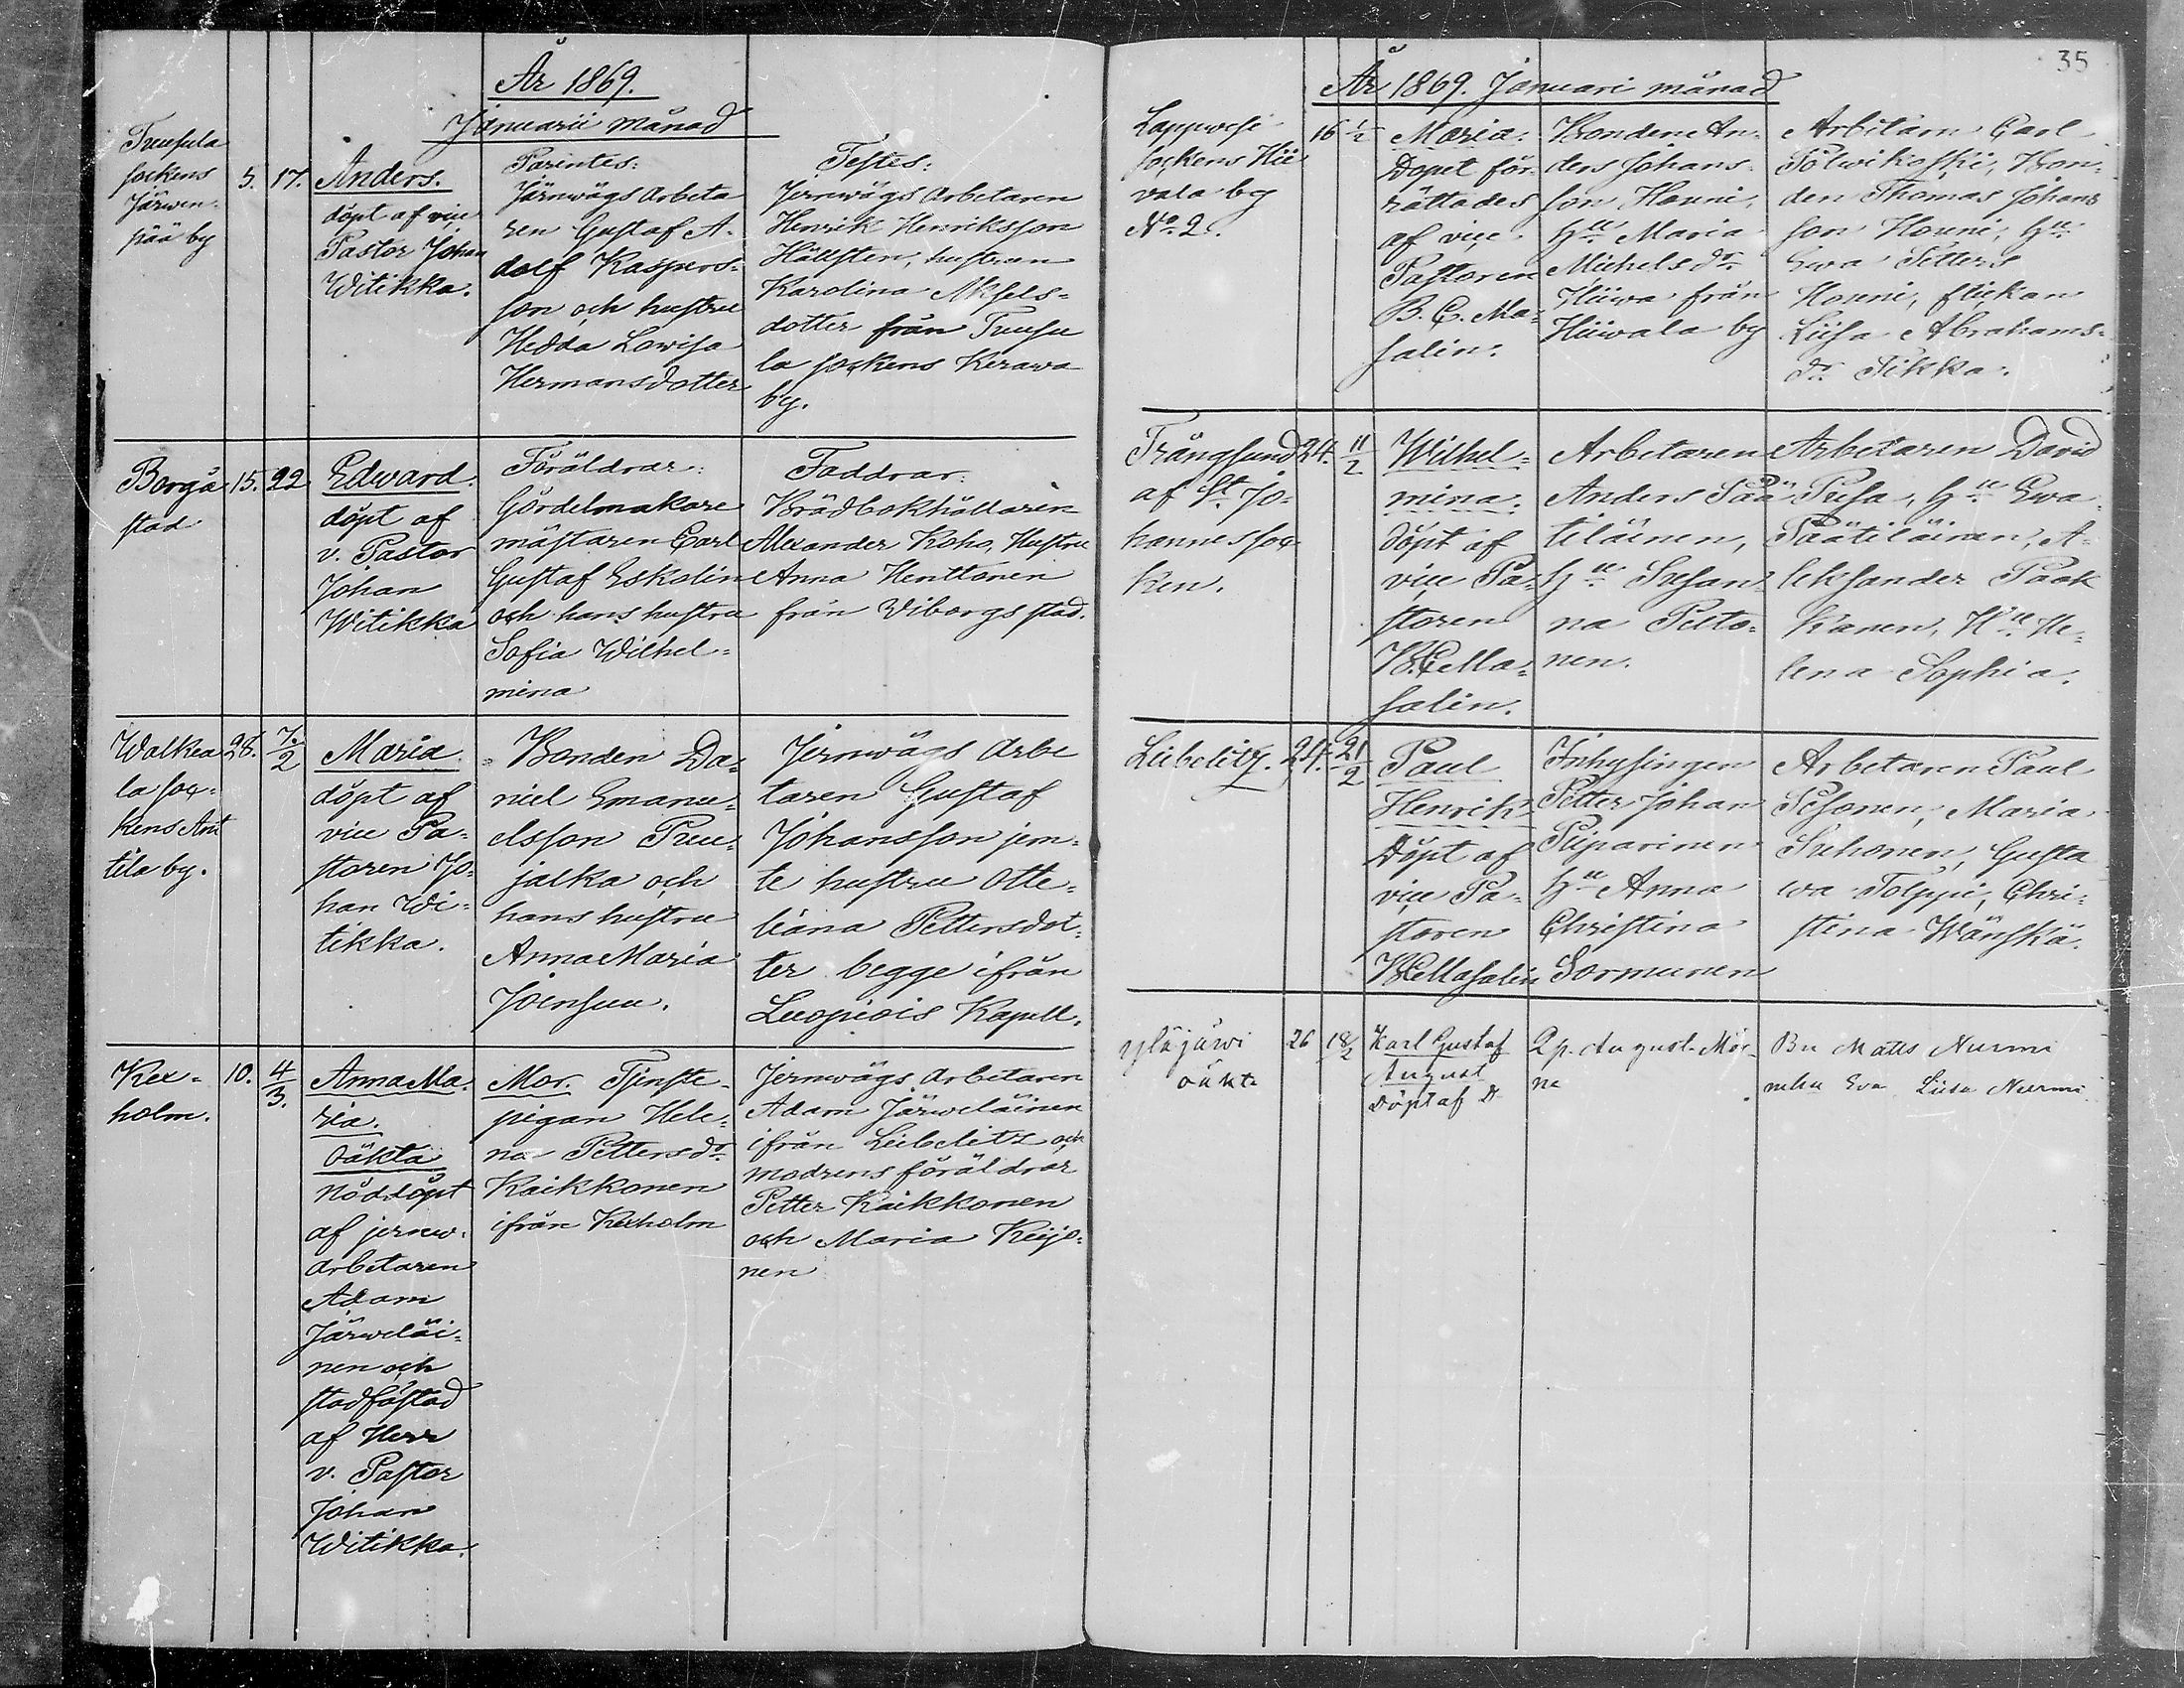 År 1869.
Januarii månad
Tuusula
sockens
Järwen-
pää by
5. 17.
Anders.
döpt af vice
Pastor Johan
Witikka.
Parintes:
Järnwägs arbeta
ren Gustaf A-
dolf Kaspers-
son och hustru
Hedda Lowisa
Hermansdotter
Testes:
Jernwägs arbetaren
Henrik Henriksson
Hällsten, hustrun
Karolina Aksels-
dotter från Tuusu
la sockens Kerawa
by.
Borgå
stad
15. 22
Edward.
döpt af
v. Pastor
Johan
Witikka
Föräldrar:
Gördelmakare
mästaren Carl
Gustaf Eskolin
och hans hustru
Sofia Wilhel-
mina
Faddrar:
Brädbokhållaren
Alexander Koho, Hustru
Anna Henttonen
från Wiborgs stad.
Walkea
la soc-
kens Ant
tila by.
28. 7./2
Maria
döpt af
vice Pa-
storen Jo-
han Wi-
tikka.
Bonden Da-
niel Emanu-
elsson Puu-
jalka och
hans hustru
Anna Maria
Joensuu.
Jernwägs arbe
taren Gustaf
Johansson jem-
te hustru Otte-
liana Pettersdot-
ter begge ifrån
Luopiois Kapell.
Kex-
holm.
10. 4/3.
Anna Ma-
ria.
Oäkta
Nöddöpt
af jernw.
arbetaren
Adam
Järweläi-
nen och
stadfästad
af Herr
v. Pastor
Johan
Witikka.
Mor. Tjenste-
pigan Hele-
na Pettersdr.
Kaikkonen
ifrån Kexholm
Jernwägs arbetaren
Adam Järweläinen
ifrån Libelitz och
modrens föräldrar
Petter Kaikkonen
och Maria Keijo-
nen
35
År 1869. Januari månad
Lappwesi
sockens Hii
vala by
No 2.
16 1/2
Maria.
Dopet för-
rättades
af vice
Pastoren
B. E. Ma-
salin.
Bonden An-
ders Johans-
son Honni,
Hu Maria
Michelsdr.
Hiiwa från
Hiiwala by
Arbetarn Carl
Pölwikoski, Bon-
den Thomas Johans
son Honni, Hu
Ewa Petters
Honni, flickan
Liisa Abrahams-
dr. Pikka.
Trångsund
af St. Jo-
hannes soc-
ken.
24. 11/2
Wilhel-
mina.
döpt af
vice Pa-
storen
B. E. Ma-
salin.
Arbetaren
Anders Pää
tiläinen,
Hu Susan-
na Pelto-
nen.
Arbetaren David
Pusa, Hu Ewa
Päätiläinen, A-
leksander Paak
kanen, Hu He-
lena Sophia.
Libelitz.
24. 21/2
Paul
Henrik
Döpt af
vice Pa-
storen
B. E. Masalin
Inhysingen
Petter Johan
Piiparinen
Hu Anna
Christina
Sormunen
Arbetaren Paul
Pesonen, Maria
Suhonen, Gusta
wa Tolppi, Chri-
stina Wänskä.
Ylöjärwi
oäkta
26 18/2
Karl Gustaf
August
Döpt af D
Qp. August.
na
Bn Matts Nurmi
Eva Liisa Nurmi